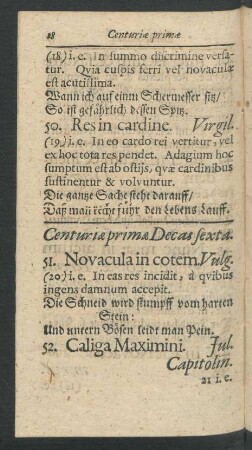 28 Centuriæ primæ
(18) i. e. In summo discrimine versa-
tur. Qvia cuspis ferri vel novaculæ
est acutissima.
Wann ich auf einm Schermesser sitz/
So ist gefährlich dessen Spitz.
50. Res in cardine. Virgil.
(19.) i. e. In eo cardo rei vertitur, vel
ex hoc tota res pendet. Adagium hoc
sumptum est ab ostijs, qvæ cardinibus
sustinentur & volvuntur.
Die gantze Sache steht darauff/
Daß man recht führ den Lebens Lauff.
Centuriæ primæ Decas sexta.
51. Novacula in cotem. Vulg.
(20) i. e. In eas res incidit, à qvibus
ingens damnum accepit.
Die Schneid wird stumpff vom harten
Stein:
Und untern Bösen leidt man Pein.
52. Caliga Maximini. Jul.
Capitolin.
21 i. e.